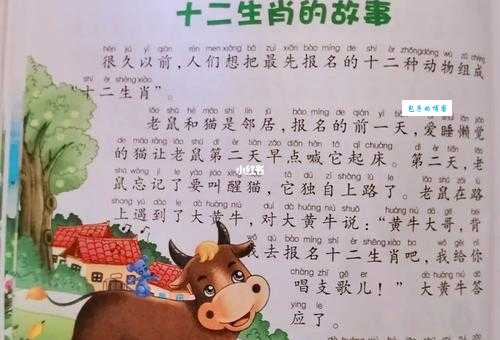 十二生肖的故事
hěn jiǔ yǐ qián rén men xiǎng bǎ zuì xiān bào míng de shí èr zhǒng dòng wù zǔ chéng
很久以前，人们想把最先报名的十二种动物组成
shí èr shēng xiào
“十二生肖”。
包丰的博客
lǎo shǔ hé māo shì lín jū bào míng de qián yì tiān ài shuì lǎn jiào
老鼠和猫是邻居，报名的前一天，爱睡懒觉
de māo ràng lǎo shǔ dì èr tiān zǎo diǎn hǎn tā qǐ chuáng dì èr tiān lǎo
的猫让老鼠第二天早点喊它起床。第二天，老
小红书
shǔ wàng jì le yào jiào xǐng māo tā dú zì shàng lù le lǎo shǔ zài lù
鼠忘记了要叫醒猫，它独自上路了。老鼠在路
shàng yù dào le dà huáng niú duì dà huáng niú shuō huáng niú dà gē bēi
上遇到了大黄牛，对大黄牛说：“黄牛大哥，背
wǒ qù bào míng shí èr shēng xiào ba wǒ gěi nǐ
我去报名十二生肖吧，我给你
chàng zhī gē er dà huáng niú dā
唱支歌儿！”大黄牛答
yìng le
应了。